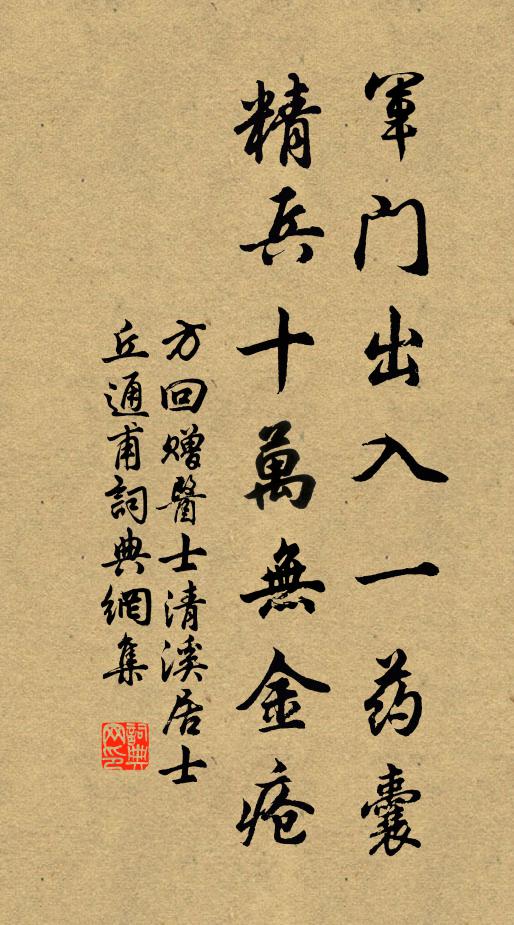 軍门出入一药囊
精兵十萬無金疮
方回赠醫士清溪居士
丘通甫詞典網集
詞典
网印